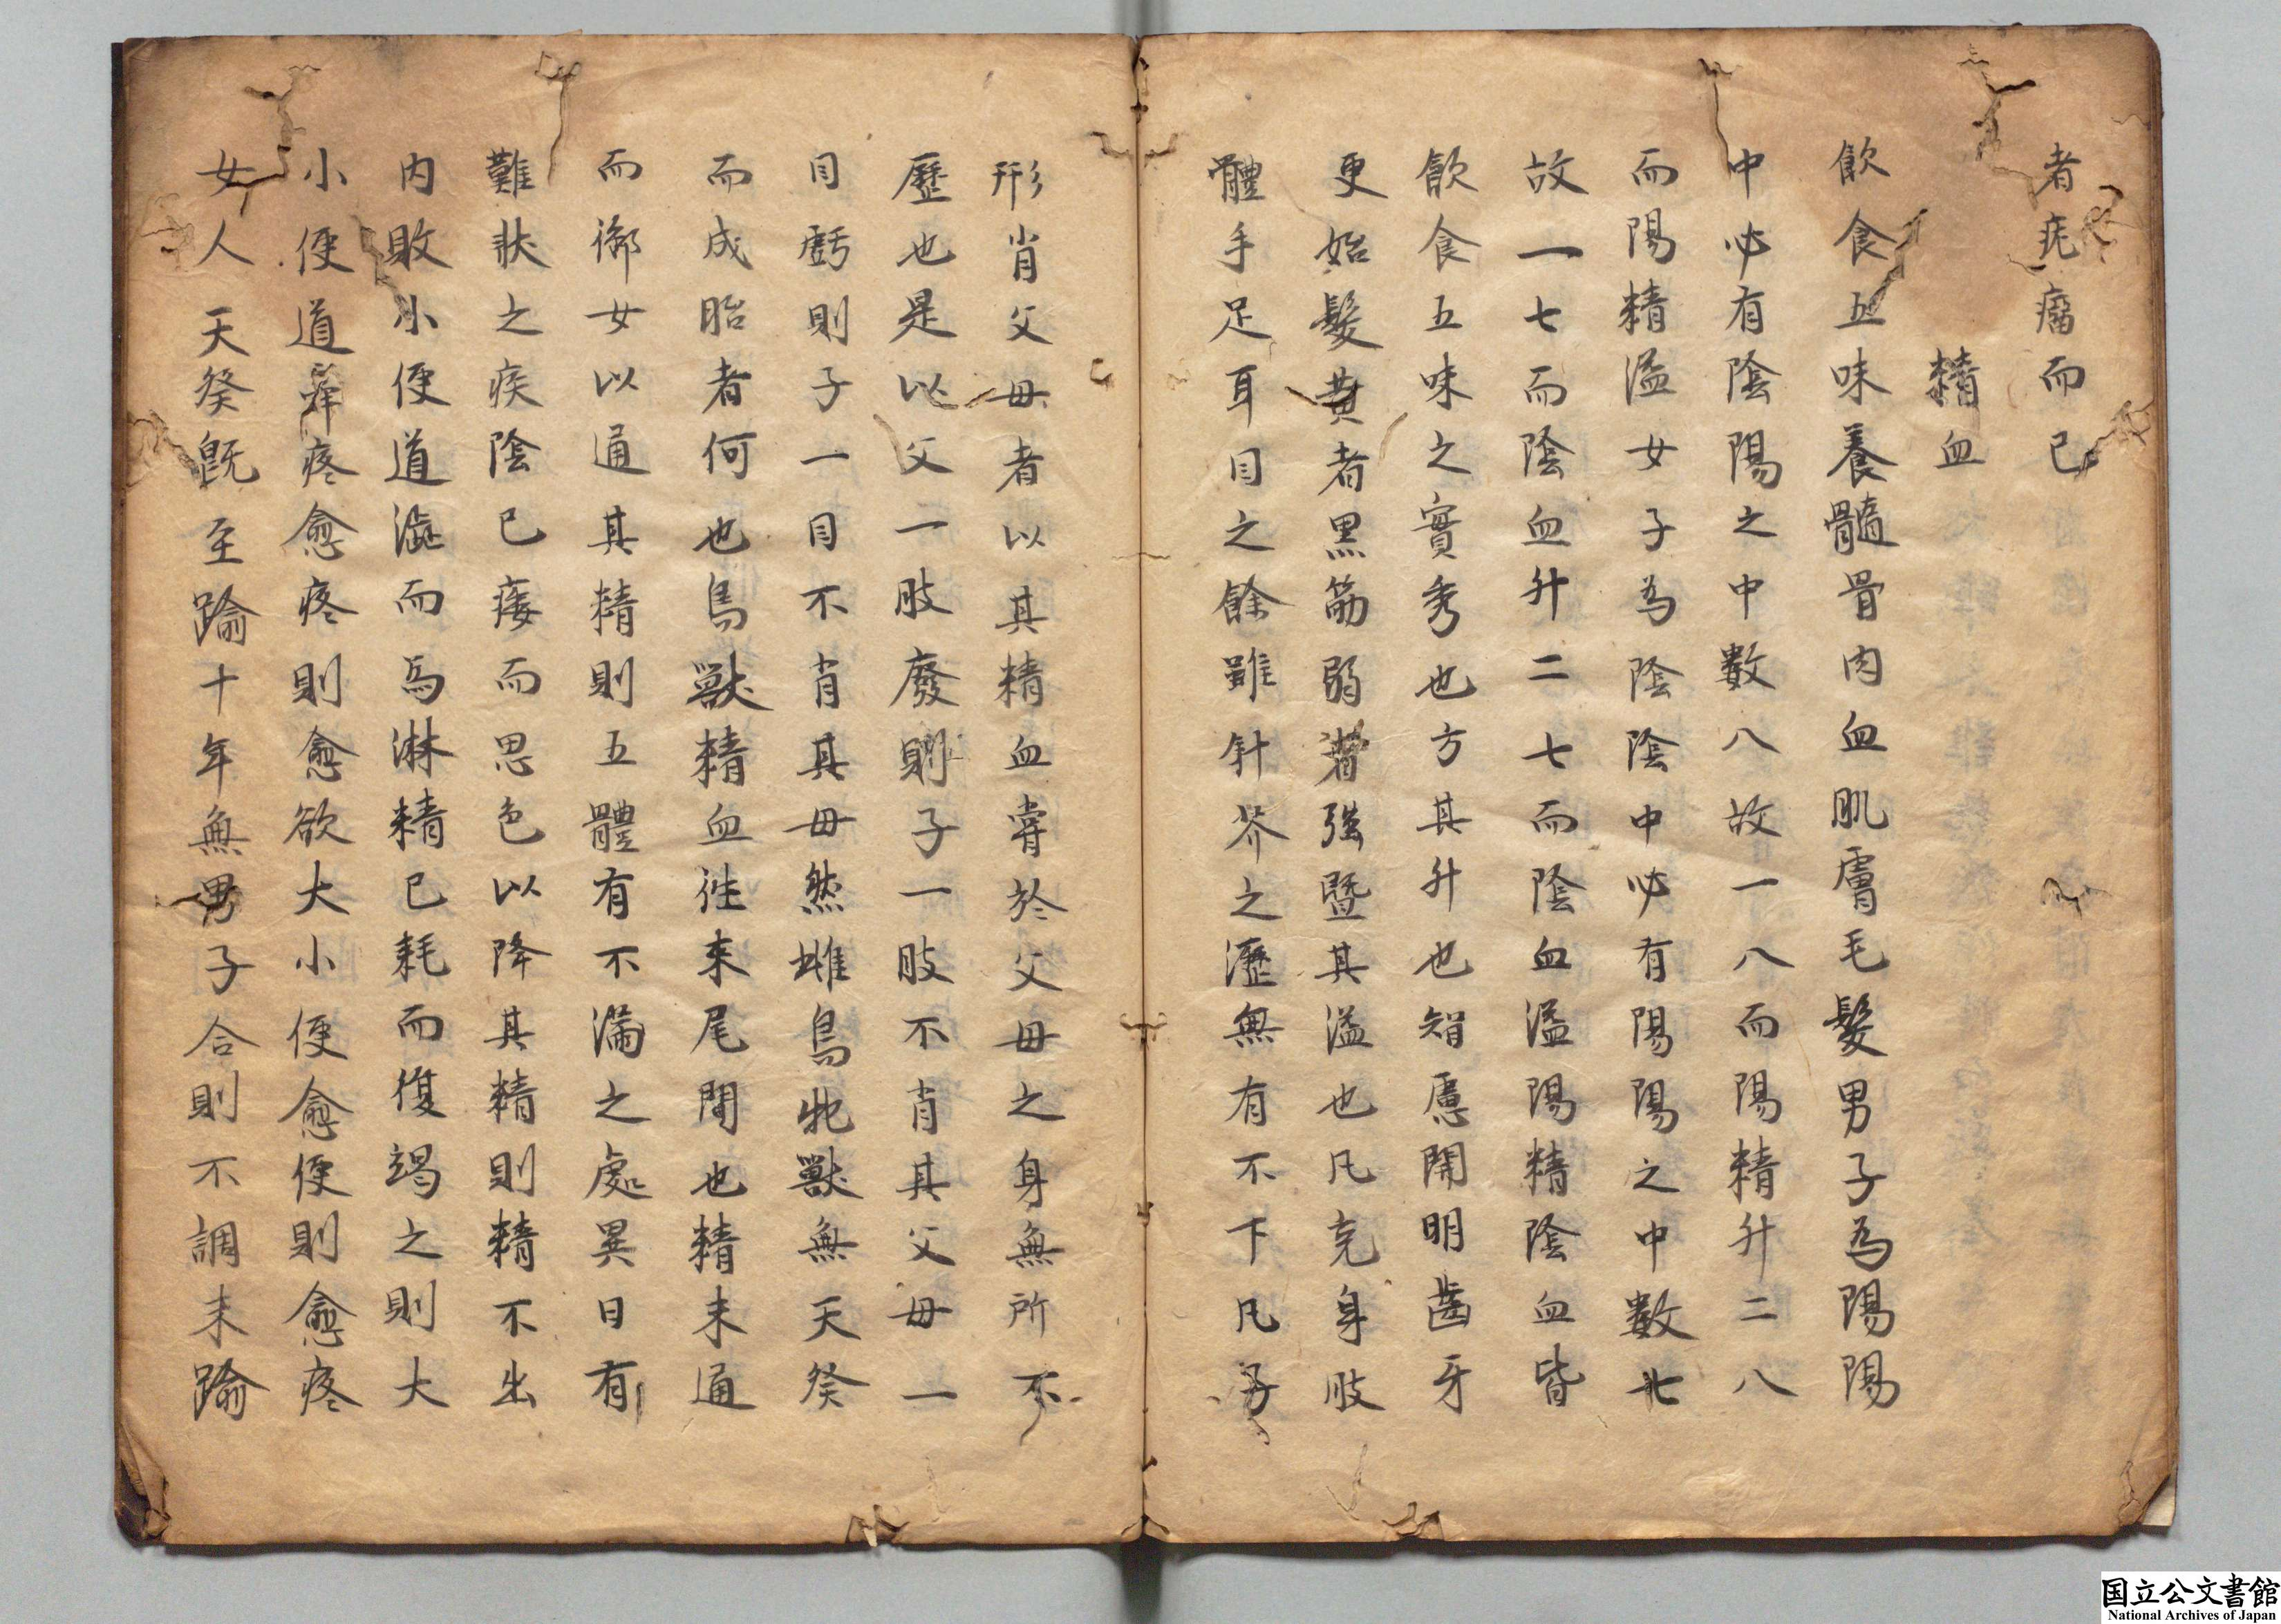 者疣瘤而已
精血
飲食五味養髓骨肉血肌膚毛髮男子為陽陽
中必有陰陽之中中數八故一八而陽精升二八
而陽精溢女子為陰陰中必有陽陽之中中數七
故一七而陰血升二七而陰血溢陽精陰血皆
飲食五味之實秀也方其升也智慮開明齒牙
更始髮黄者黑筋弱者强暨其溢也凡充身肢
體手足耳目之餘雖針芥之瀝無有不下凡子
形肖父母者以其精血嘗於父母之身無所不
歷也是以父一肢廢則子一肢不肖其父母一
目虧則子一目不肖其母然雌鳥牝獸無天癸
而成胎者何也鳥獸精血徃来尾閭也精未通
而御女以通其精則五體有不滿之處異日有
難狀之疾陰已痿而思色以降其精則精不出
内敗小便道澁而為淋精已耗而復竭之則大
小便道牽疼愈疼則愈欲大小便愈便則愈疼
女人天癸既至踰十年無男子合則不調未踰
国立公文書館
National Archives of Japan